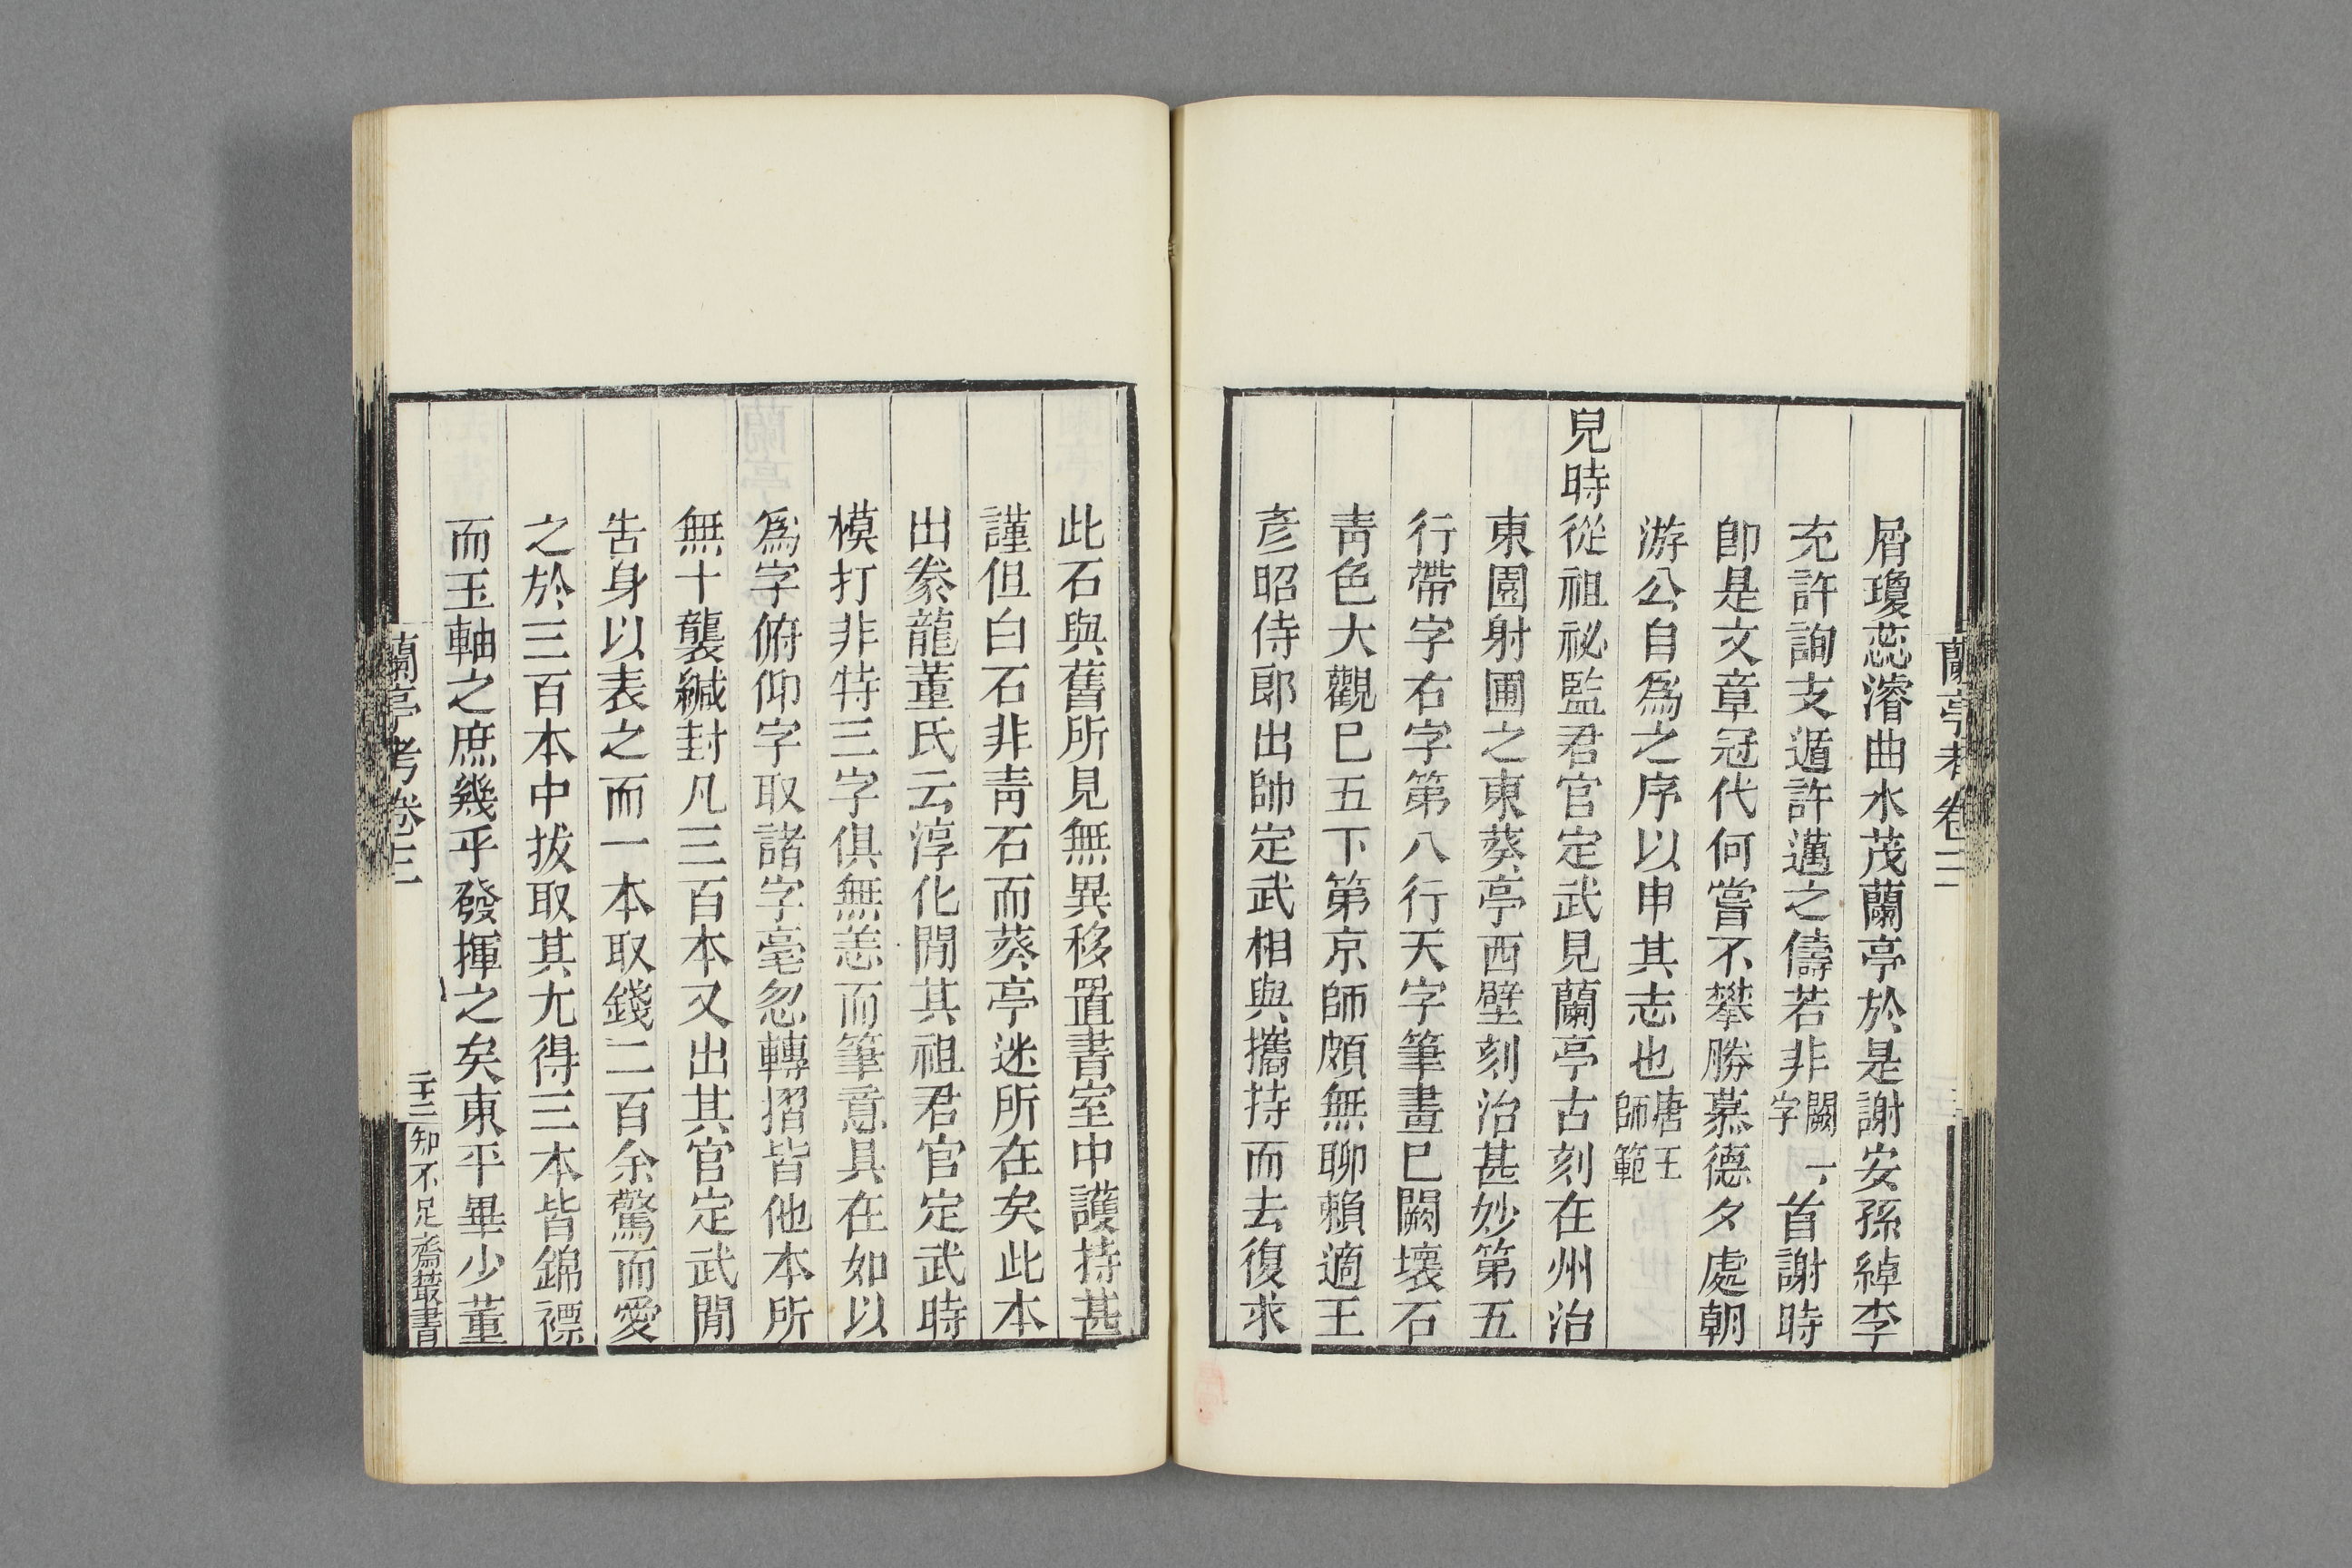 蘭亭考卷三
屑瓊蕊濬曲水茂蘭亭於是謝安孫綽李
充許詢支遁許邁之儔若非闕一字首謝時
卽是文章冠代何嘗不攀勝慕德夕處朝
游公自爲之序以申其志也唐王師範
兒時從祖祕監君官定武見蘭亭古刻在州治
東園射圃之東葵亭西壁刻治甚妙第五
行帶字右字第八行天字筆畫已闕壞石
青色大觀已五下第京師頗無聊賴適王
彥昭侍郎出帥定武相與攜持而去復求
此石與舊所見無異移置書室中護持甚
謹但白石非青石而葵亭迷所在矣此本
出豢龍董氏云淳化閒其祖君官定武時
模打非特三字俱無恙而筆意具在如以
爲字俯仰字取諸字毫忽轉摺皆他本所
無十襲緘封凡三百本又出其官定武閒
告身以表之而一本取錢二百余驚而愛
之於三百本中拔取其尤得三本皆錦褾
而玉軸之庶幾乎發揮之矣東平畢少董
蘭亭考卷三
二十二
知不足齋叢書